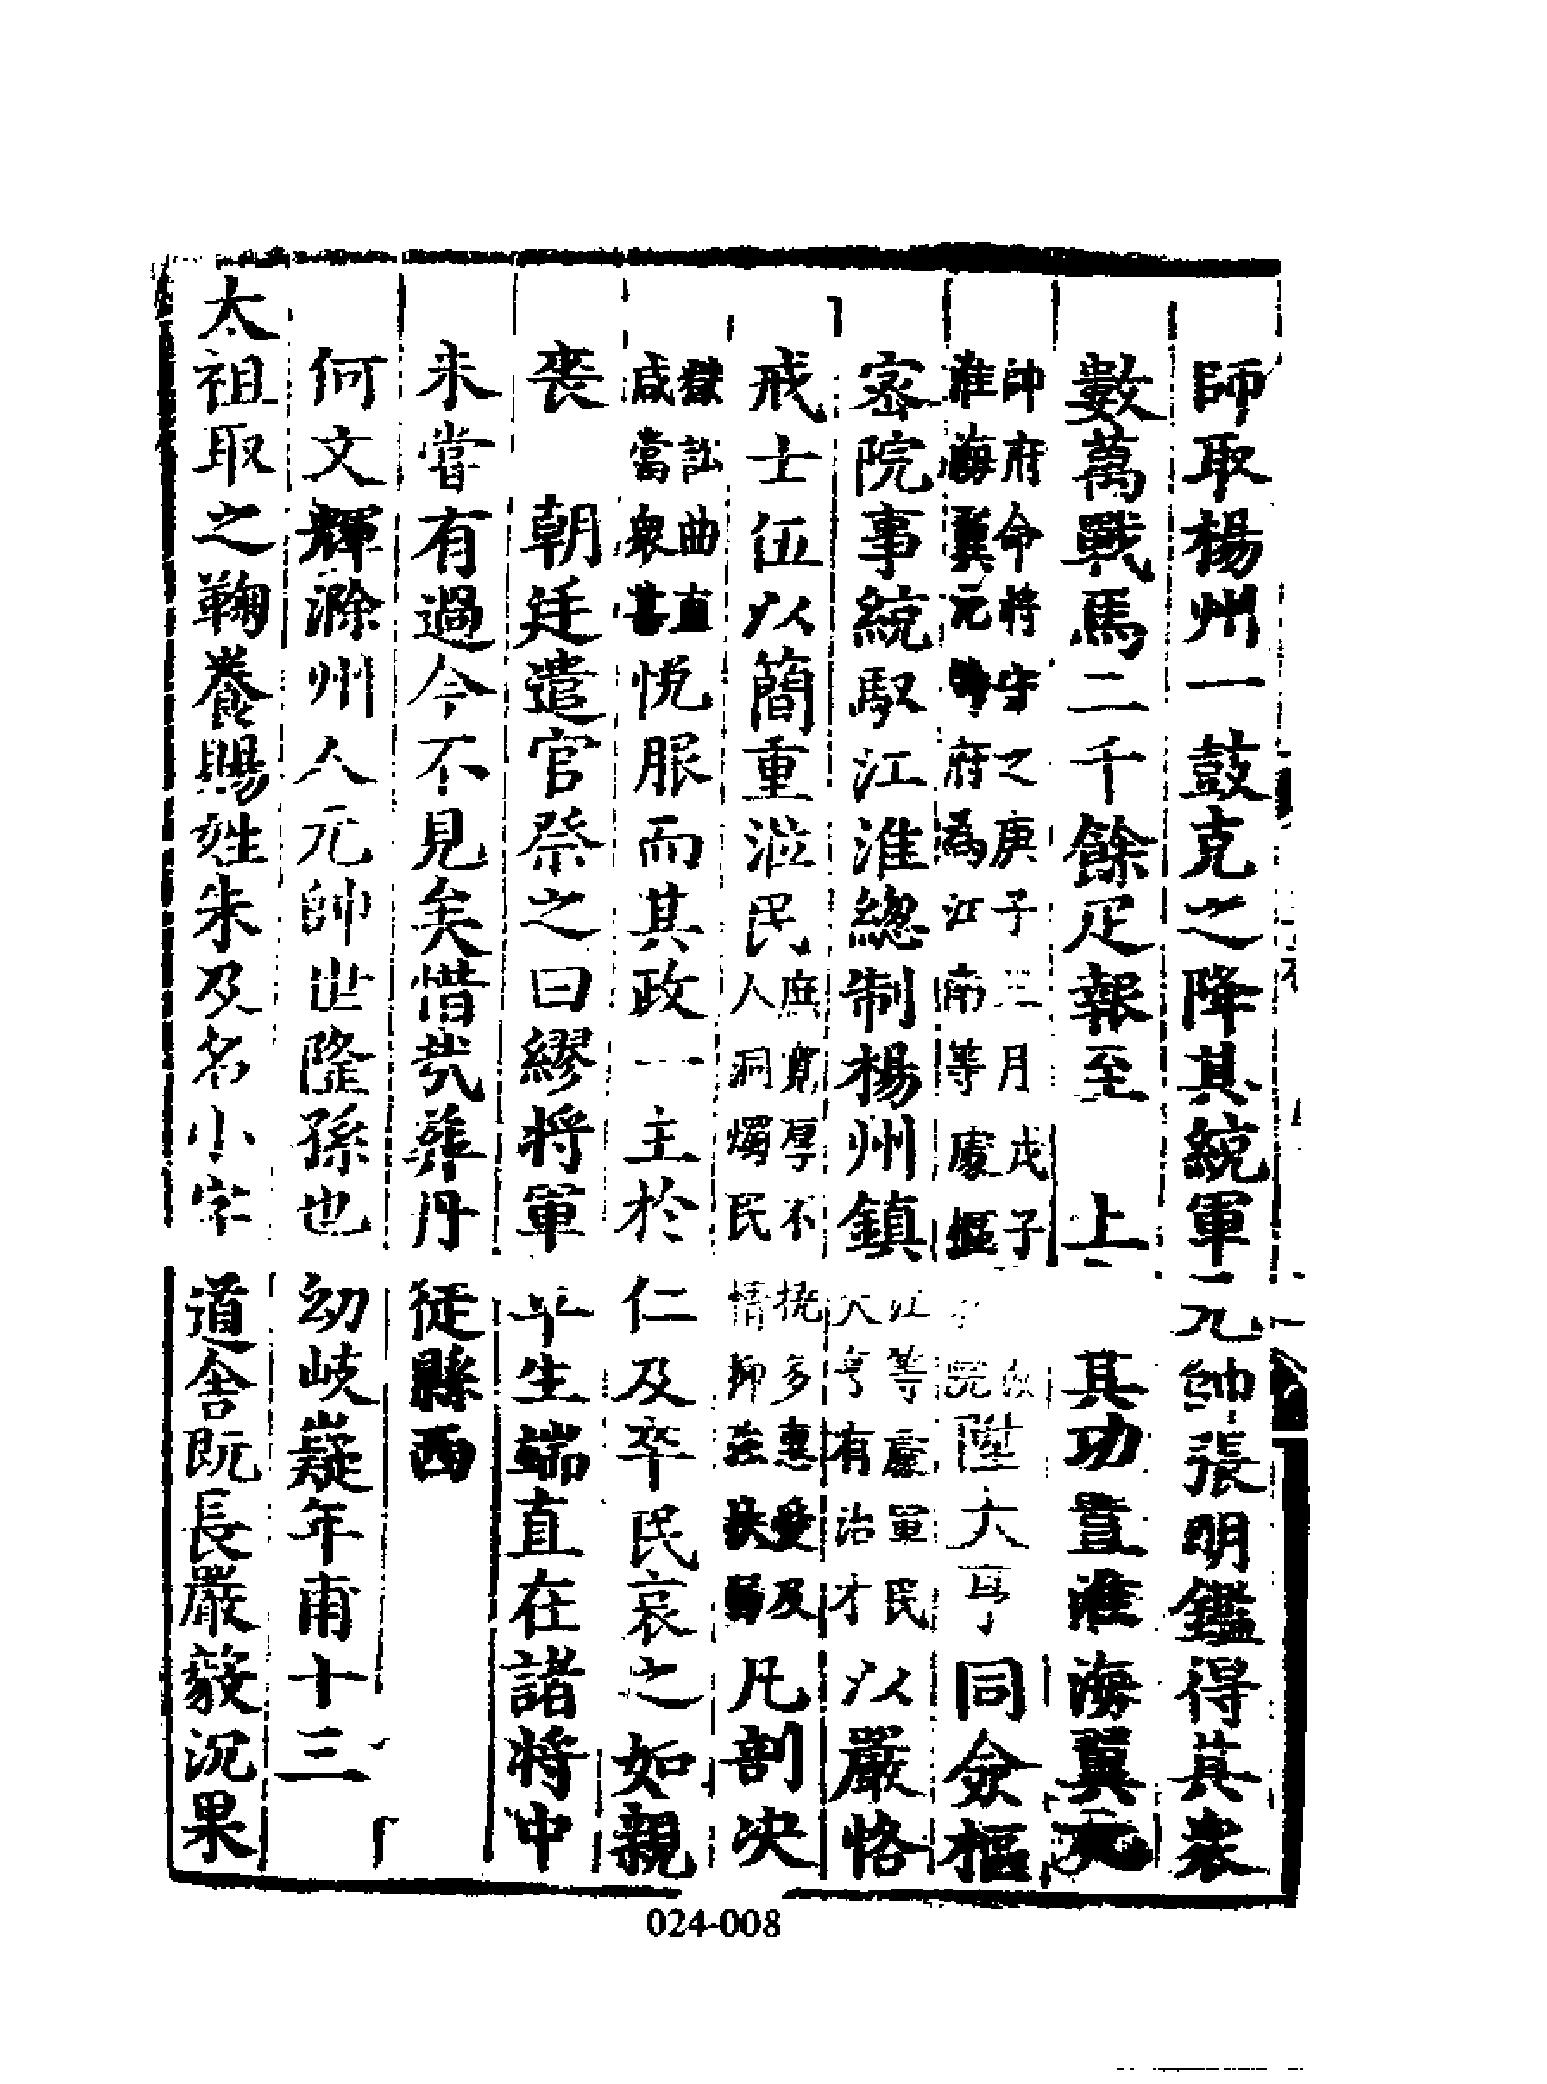 師取楊州一鼓克之降其統軍元帥張明鑑得其衆
數萬戰馬二千餘疋報至　上　其功置淮海翼元
帥府命將守之庚子三月戊子改
淮海翼元帥府為江南等處樞
院陞大亨同僉樞
密院事統馭江淮總制楊州鎮
江等處軍民
大亨有治才
以嚴恪
戒士伍以簡重涖民
庶寬厚不撓多惠愛及
人洞燭民情抑強扶弱
凡剖决
獄訟曲直
咸當衆甚
悅服而其政一主於仁及卒民哀之如親
喪　朝廷遣官祭之曰繆將軍平生端直在諸將中
未嘗有過今不見矣惜哉葬丹徒縣西
何文輝滁州人元帥世隆孫也幼岐嶷年甫十三
太祖取之鞠養賜姓朱及名小字道舍既長嚴毅沉果
024-008